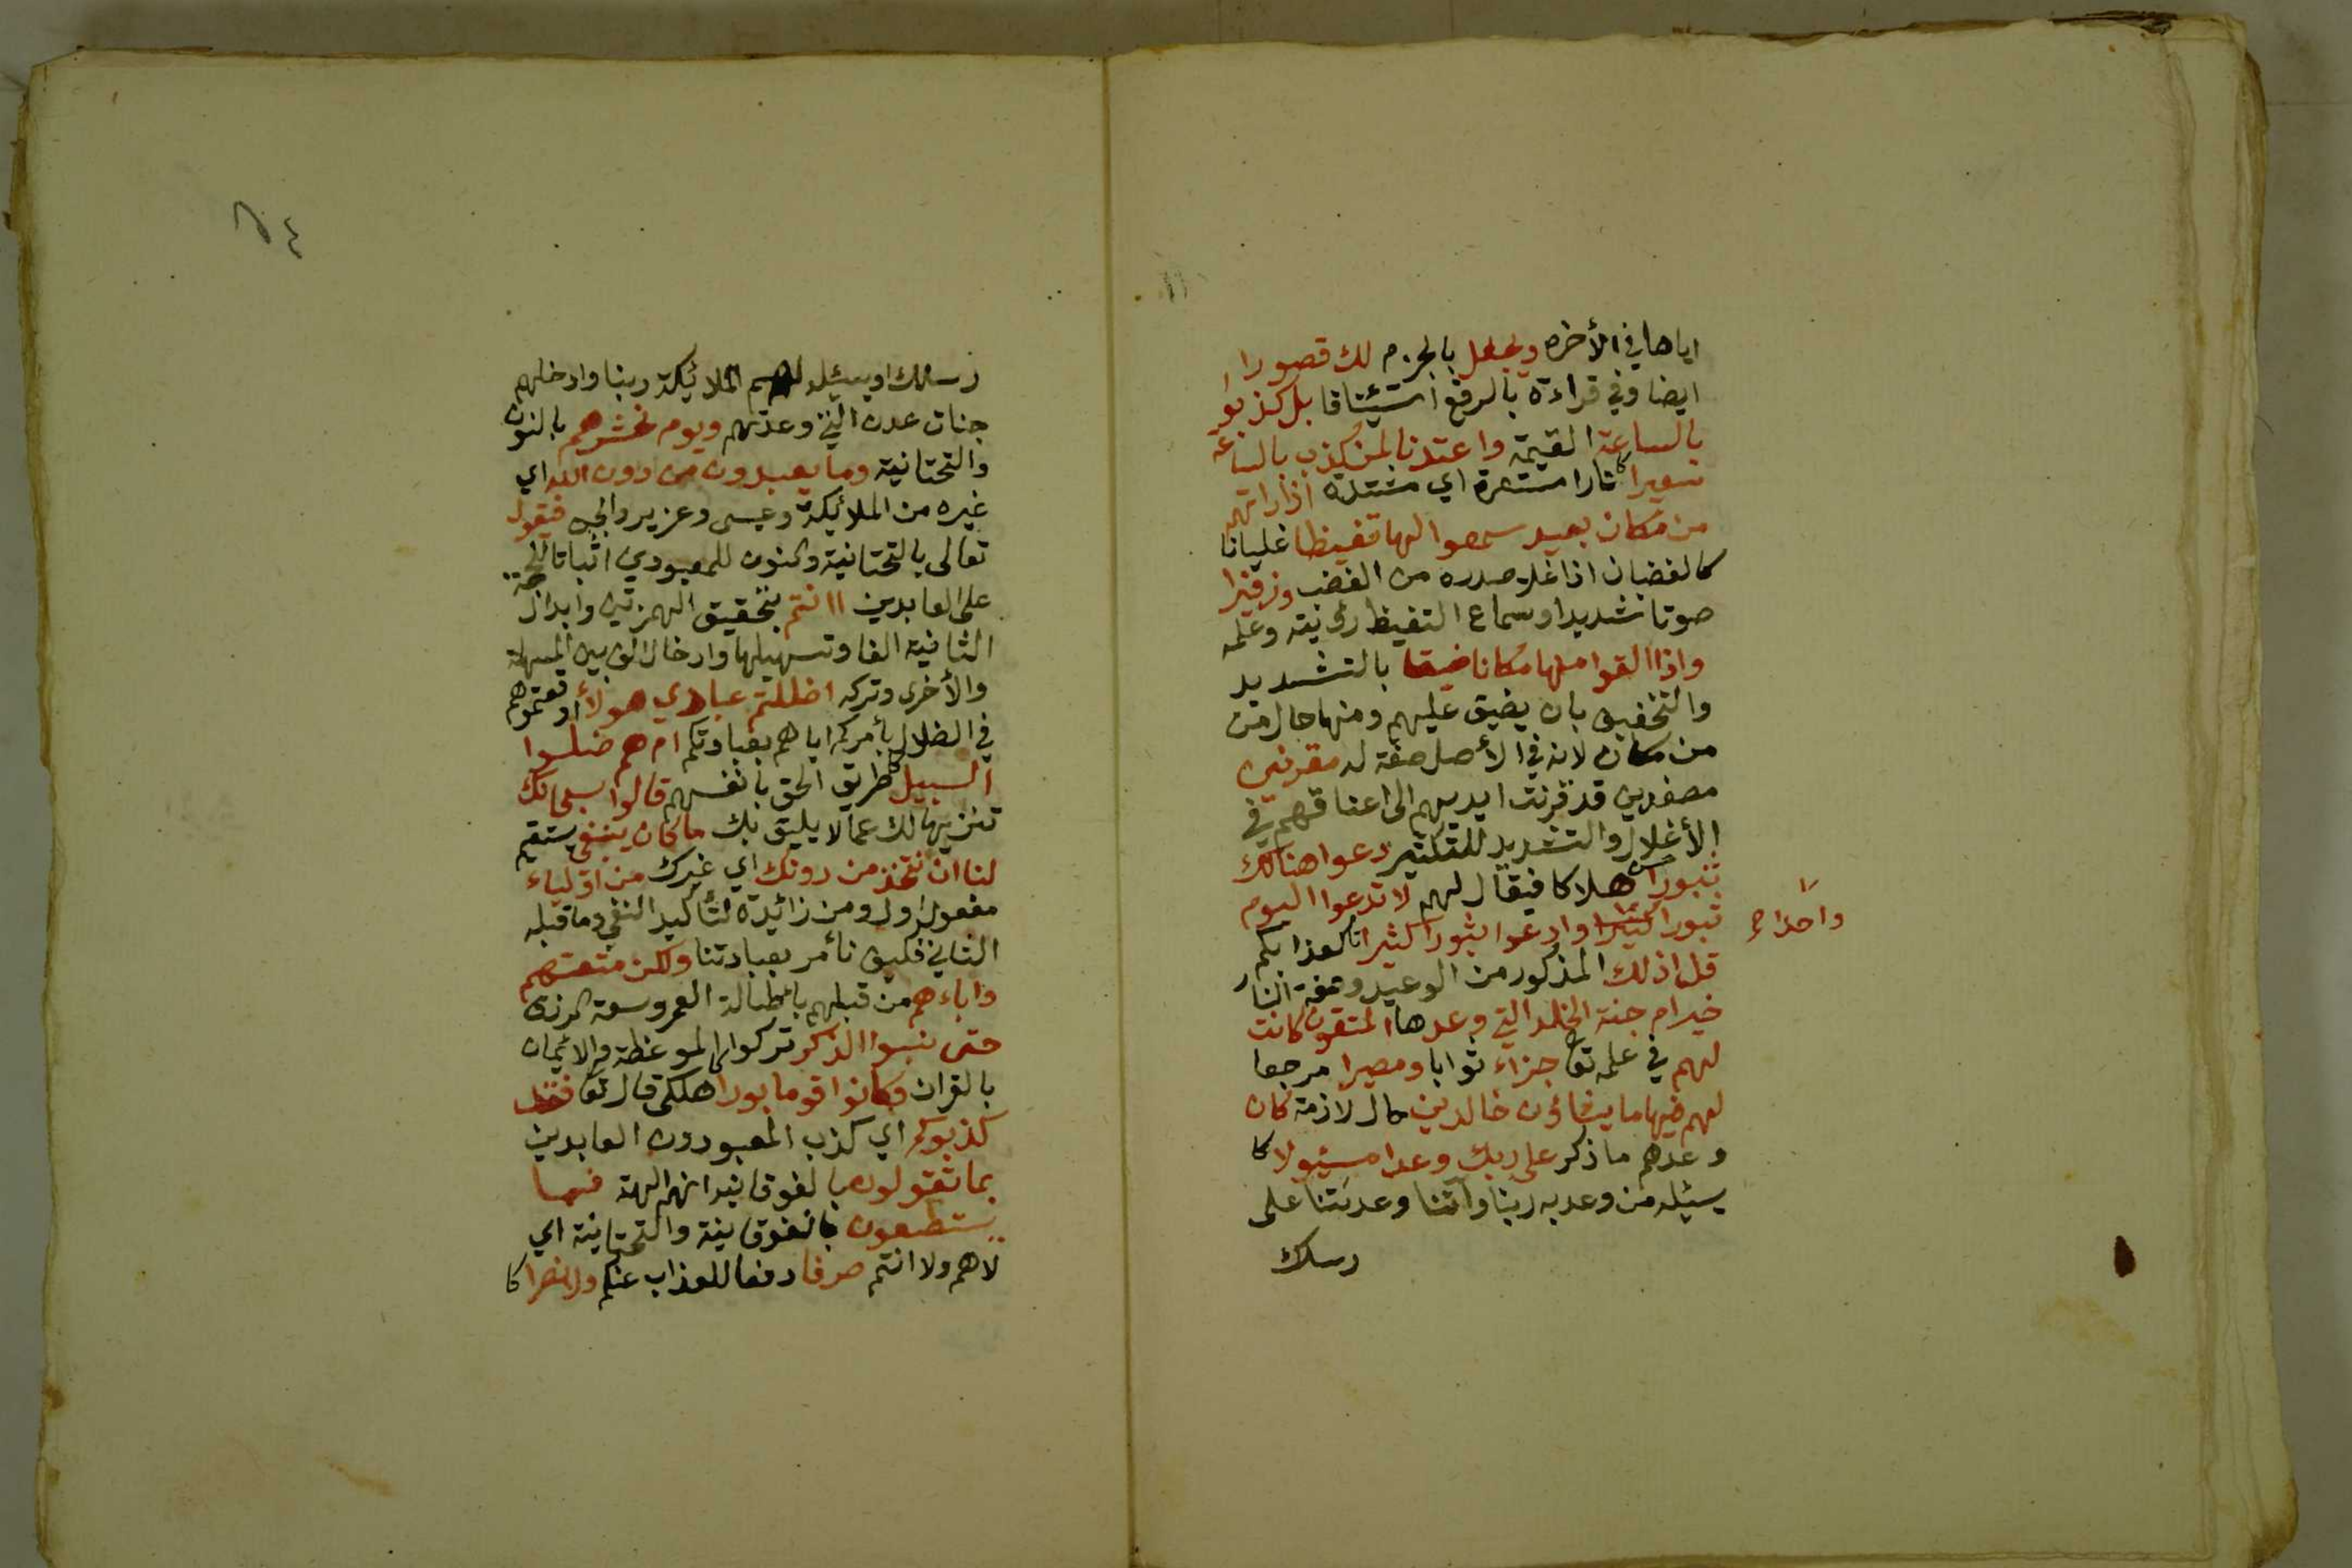 اياها في الأخره ويجعل بالجزم لك قصورا
ايضا وفي قراءة بالرفع استئنافا بل كذبوا
بالساعة القيمة واعتدنا لمن كذب بالساعة
سعيرا نارا مستعرة اي مشتدة اذا راتهم
من مكان بعيد سمعوا لها تغيظا غليانا
كالغضبان اذا غلا صدره من الغضب وزفيرا
صوتا شديدا وسماع التغيظ رؤيته وعلمه
واذا القوا منها مكانا ضيقا بالتشديد
والتخفيف بان يضيق عليهم ومنها حال من
من مكان لانه في الأصل صفة له مقرنين
مصفدين قد قرنت ايديهم الى اعناقهم في
الأغلال والتشديد للتكثير دعوا هنالك
ثبورا هلاكا فيقال لهم لا تدعوا اليوم
ثبورا كثيرا وادعوا ثبورا كثيرا كعذابكم
واحدا صح
قل اذلك المذكور من الوعيد وصفة النار
خير ام جنة الخلد التي وعدها المتقون كانت
لهم في علمه تعا جزاء ثوابا ومصيرا مرجعا
لهم فيها ما يشاؤن خالدين حال لازمة كان
وعدهم ما ذكر على ربك وعدا مسئولا
يسئله من وعد به ربنا وآتنا وعدتنا على
رسلك
رسلك او يسئله لهم الملائيكة ربنا وادخلهم
جنات عدن التي وعدتهم ويوم نحشرهم بالنون
والتحتانية وما يعبدون من دون الله اي
غيره من الملائيكة وعيسى وعزير والجن فيقول
تعالى بالتحتانية والنون للمعبودين اثباتا للحجة
على العابدين اانتم بتحقيق الهمزتين وابدال
الثانية الفا وتسهيلها وادخال الف بين المسهلة
والأخرى وتركه اضللتم عبادي هولأ اوقعتموهم
في الضلال بأمركم اياهم بعبادتكم ام هم ضلوا
السبيل طريق الحق بانفسهم قالوا سبحانك
تنزيها لك عما لا يليق بك ما كان ينبغي يستقيم
لنا ان نتخذ من دونك اي غيرك من اولياء
مفعول اول ومن زائيدة لتأكيد النفي وما قبله
الثاني فكيف نأمر بعبادتنا ولكن متعتهم
واباءهم من قبلهم باطالة العمر وسعة الرزق
حتى نسوا الذكر تركوا الموعظة والايمان
بالقران وكانوا قوما بورا هلكى قال تعا فقد
كذبوكم اي كذب المعبودون العابدين
بما تقولون بالفوقانية انهم الهة فما
يستطيعون بالفوقانية والتحتانية اي
لاهم ولا انتم صرفا دفعا للعذاب عنكم ولا نصرا